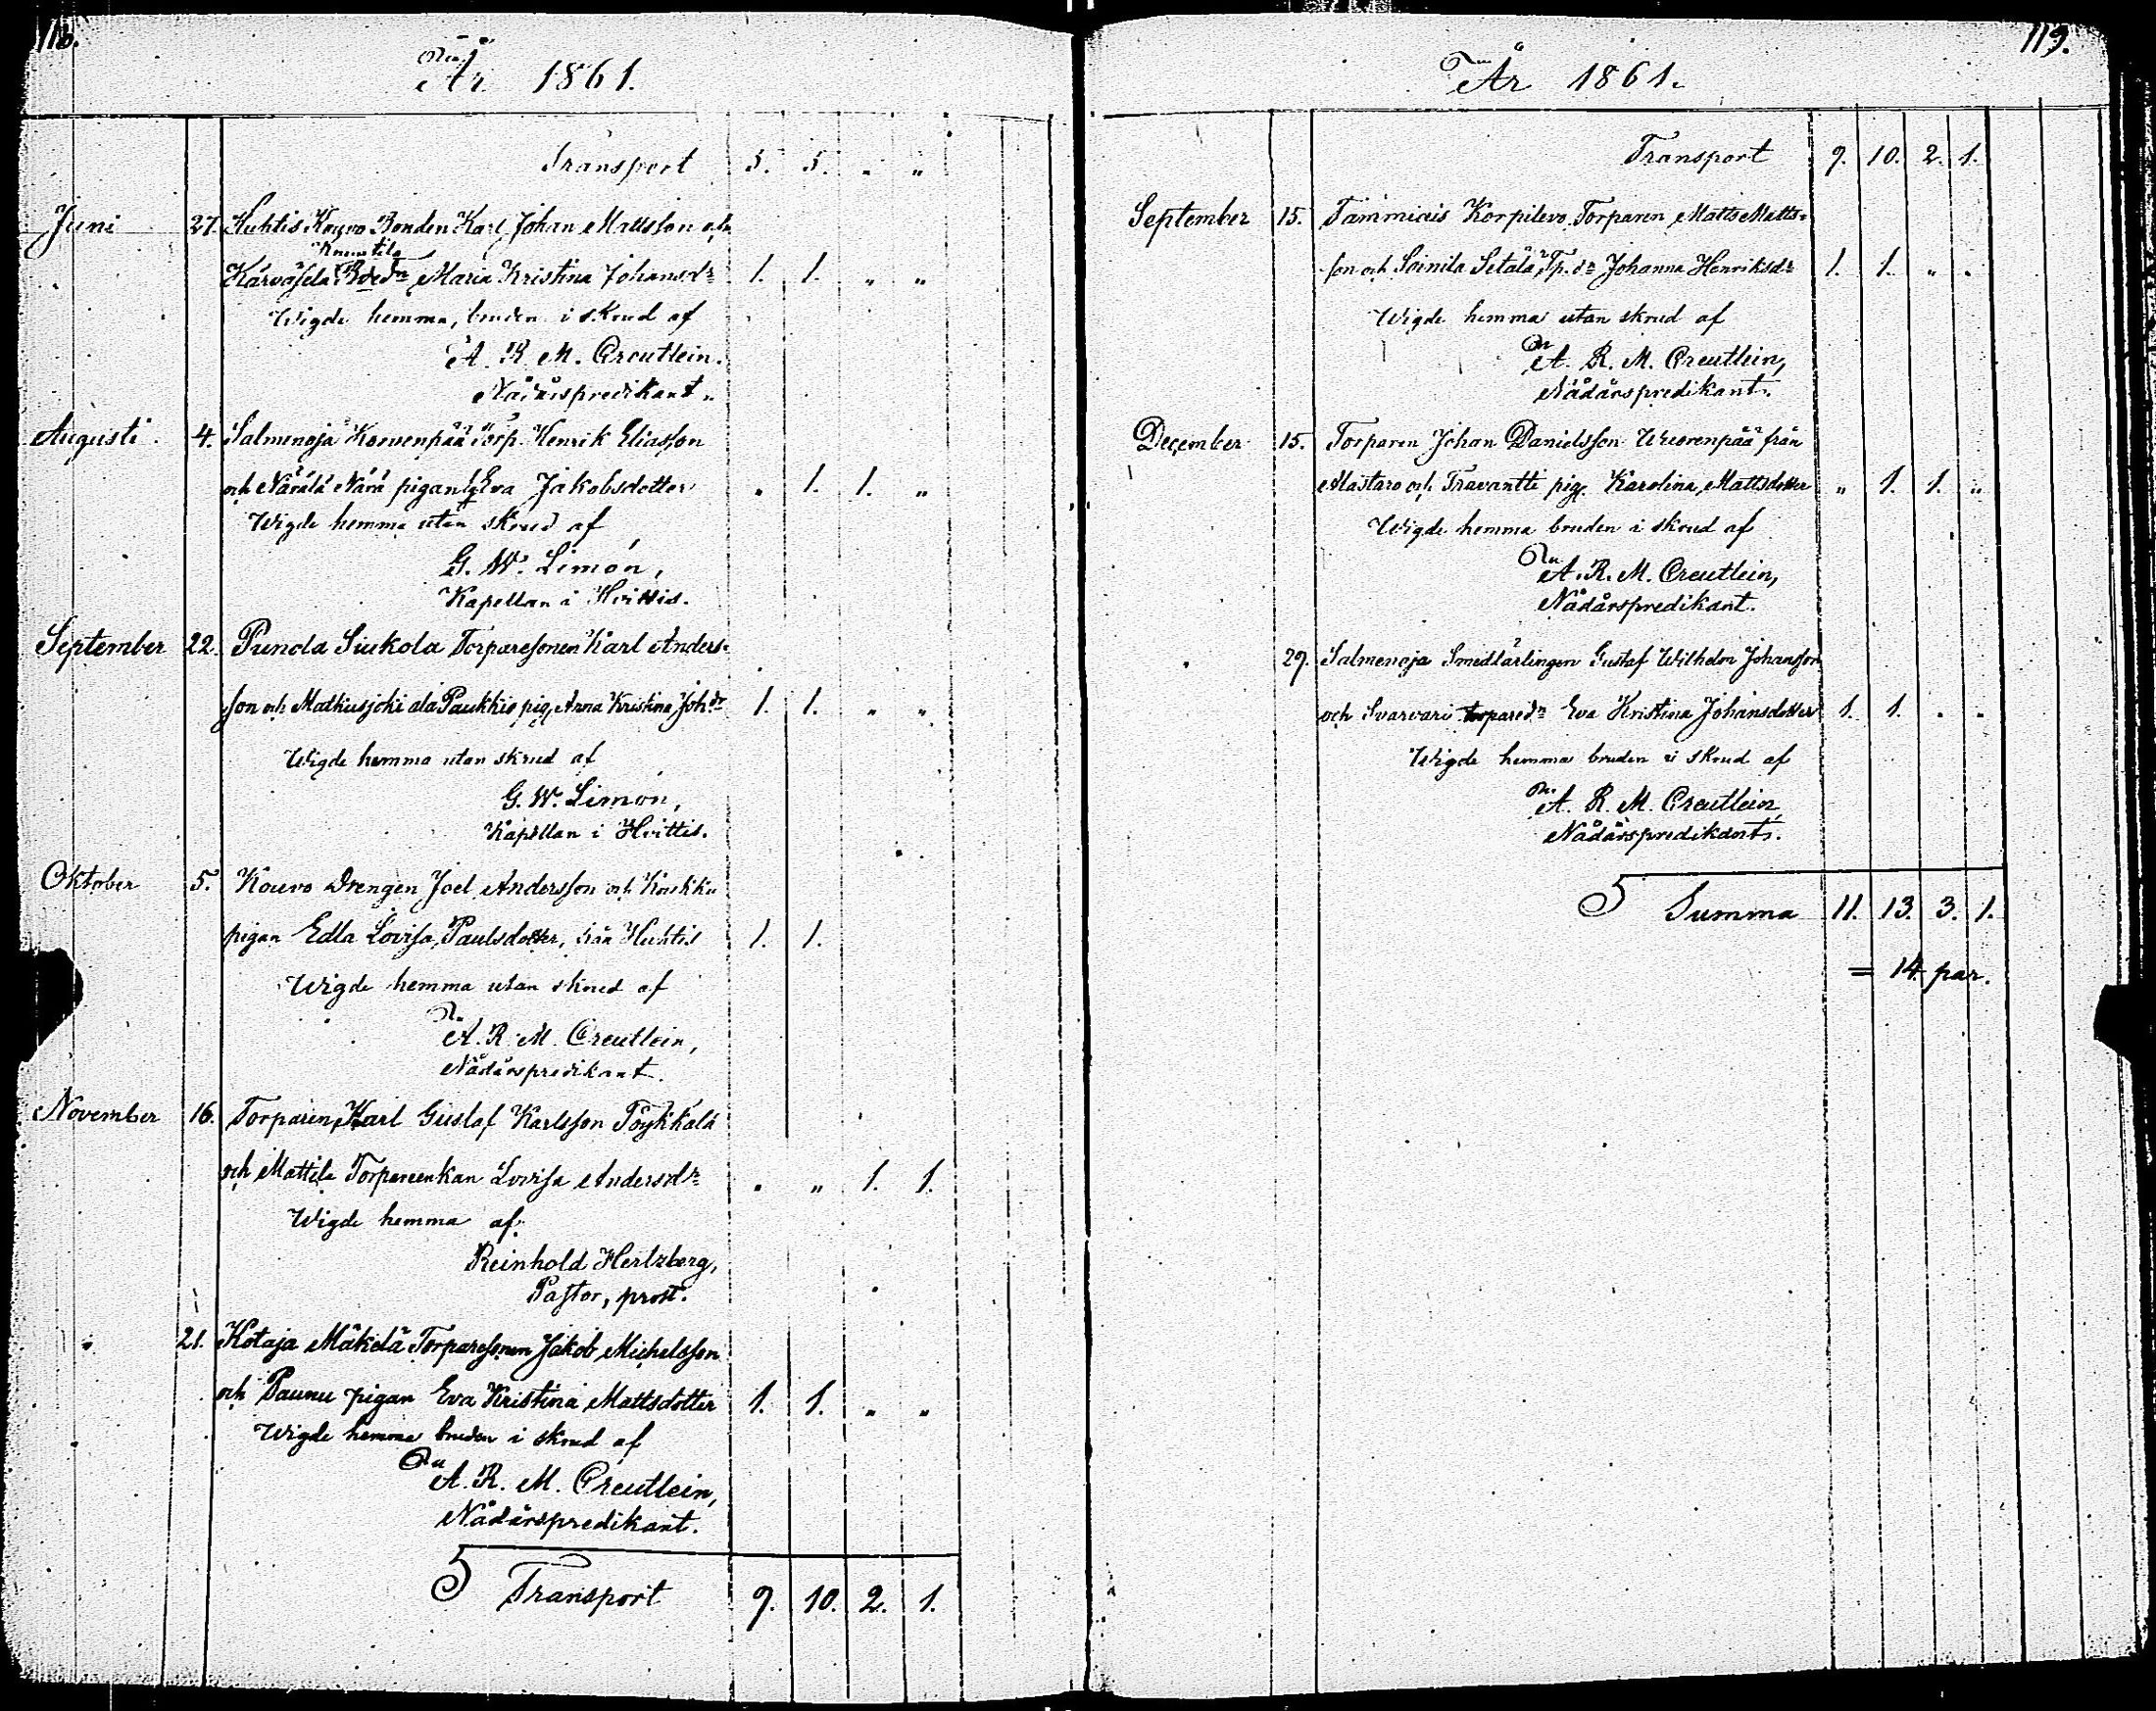 118.
År 1861.
Transport 5. 5. „ „
Juni 27. Huhtis Kouvo Bonden Karl Johan Mattsson och
Knuutila
Karvasela Bdedr Maria Kristina Johansdr 1. 1. „ „
Wigde hemma, bruden i skrud af
A. R. M. Creutlein.
Nådårspredikant.
Augusti 4. Salmenoja Korvenpää Torp. Henrik Eliasson
och Närälä Närä pigan Eva Jakobsdotter „ 1. 1. „
Wigde hemma utan skrud af
G. W. Limón,
Kapellan i Hvittis.
September 22. Punola Suikola Torparesonen Karl Anders-
son och Matkusjoki ala Paukkio pig. Anna Kristina Johdr 1. 1. „ „
Wigde hemma utan skrud af
G. W. Limón,
Kapellan i Hvittis.
Oktober 5. Kouvo Drengen Joel Andersson och
pigan Edla Lovisa Paulsdotter, från Huhtis 1. 1.
Wigde hemma utan skrud af
A. R. M. Creutlein,
Nådårspredikant.
November 16. Torparen Karl Gustaf Karlsson Töykkälä
och Mattila Torpareenkan Lovisa Andersdr „ „ 1. 1.
Wigde hemma af
Reinhold Hertzberg,
Pastor, prost.
„ 21. Kotaja Mäkelä Torparesonen Jakob Michelsson
och Paunu pigan Eva Kristina Mattsdotter 1. 1. „ „
Wigde hemma bruden i skrud af
A. R. M. Creutlein,
Nådårspredikant.
Transport 9. 10. 2. 1.
119.
År 1861.
Transport 9. 10. 2. 1.
September 15. Tammiais Korpilevo Torparen Matts Matts-
son och Soinila Setälä Tp.dr Johanna Henriksdr 1. 1. „ „
Wigde hemma utan skrud af
A. R. M. Creutlein,
Nådårspredikant.
December 15. Torparen Johan Danielsson Wuorenpää från
Mastaro och Travantti pig. Karolina Mattsdotter „ 1. 1. „
Wigde hemma bruden i skrud af
A. R. M. Creutlein,
Nådårspredikant.
„ 29. Salmenoja Smedlärlingen Gustaf Wilhelm Johansson
och Svarvari torparedr Eva Kristina Johansdotter 1. 1. „ „
Wigde hemma bruden i skrud af
A. R. M. Creutlein
Nådårspredikant.
Summa 11. 13. 3. 1.
= 14 par.